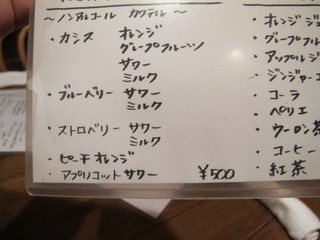 ～ノンアルコール カクテル～
・カシス オレンジ
グレープフルーツ
サワー
ミルク
・ブルーベリー サワー
ミルク
・ストロベリー サワー
ミルク
・ピーチオレンジ
アプリコットサワー ¥500
・オレンジジュ
・グレープフル
・アップルジ
・ジンジャーエ
・コーラ
・ペリエ
・ウーロン茶
・コーヒー
・紅茶